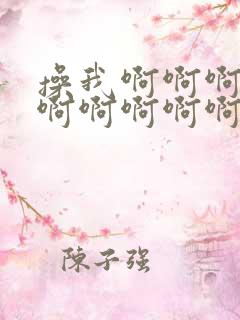 操我 啊啊啊
啊啊啊啊啊
陳子强